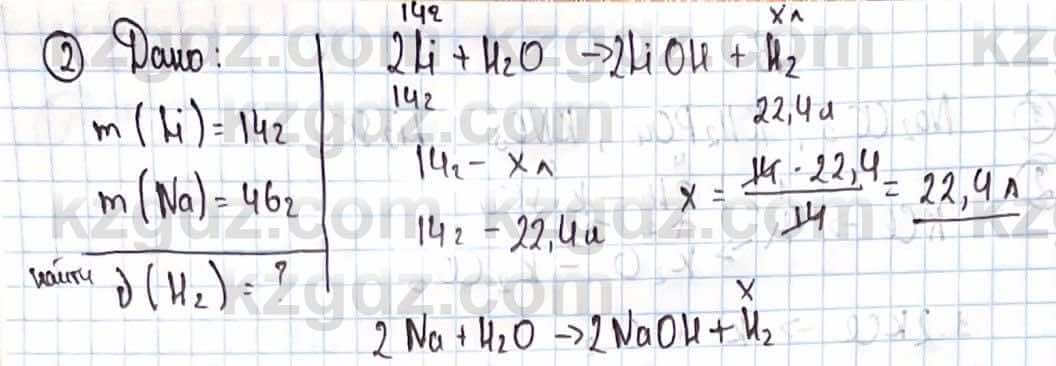 ② Дано:
m (Li) = 14г
m (Na) = 46г
найти ϑ (H₂) = ?
14г                    x л
2Li + H₂O → 2LiOH + H₂
14г                    22,4л
14г – x л
14г – 22,4л
x = 14 · 22,4 / 14 = 22,4 л
x
2 Na + H₂O → 2NaOH + H₂
kzgdz.com